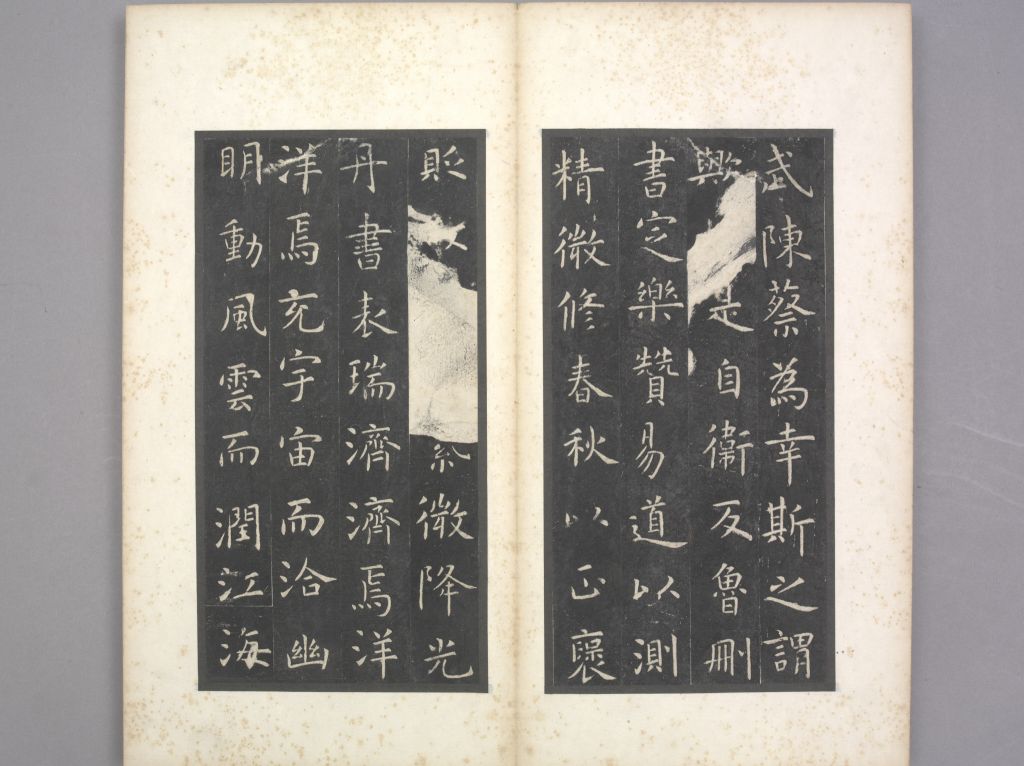 武陳蔡為幸斯之謂
歟是自衛反魯刪
書定樂贊易道以測
精微修春秋以正褒
貶微降光
丹書表瑞濟濟焉洋
洋焉充宇宙而洽幽
明動風雲而潤江海